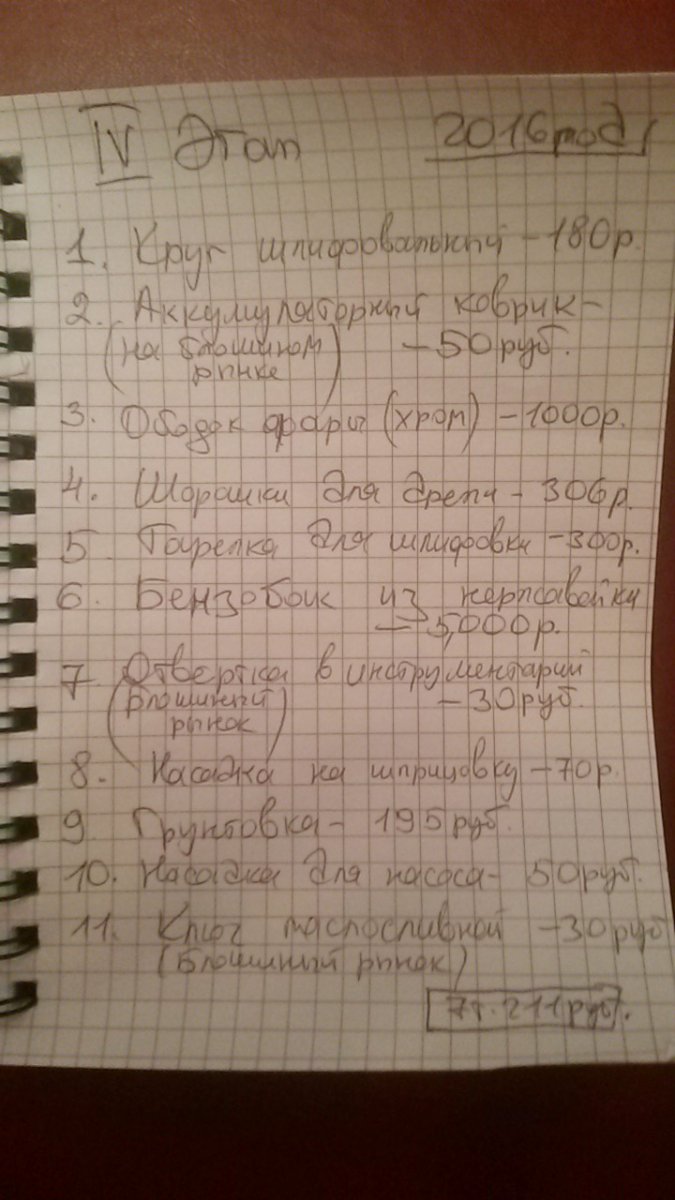 IV Этап 2016 год
1. Круг шлифовальный - 180р.
2. Аккумуляторный коврик -
(на блошином - 50 руб.
рынке)
3. Ободок фары (хром) - 1000р.
4. Шорашки для дрели - 306р.
5 Тарелка для шлифовки - 300р.
6. Бензобак из нержавейки
- 5,000р.
7 Отвертка в инструментарий
(блошиный - 30 руб.
рынок)
8. Насадка на шприцовку - 70р.
9 Грунтовка - 195 руб.
10. Насадка для насоса - 50 руб.
11. Ключ маслосливной - 30 руб
(Блошиный рынок)
7т. 211 руб.